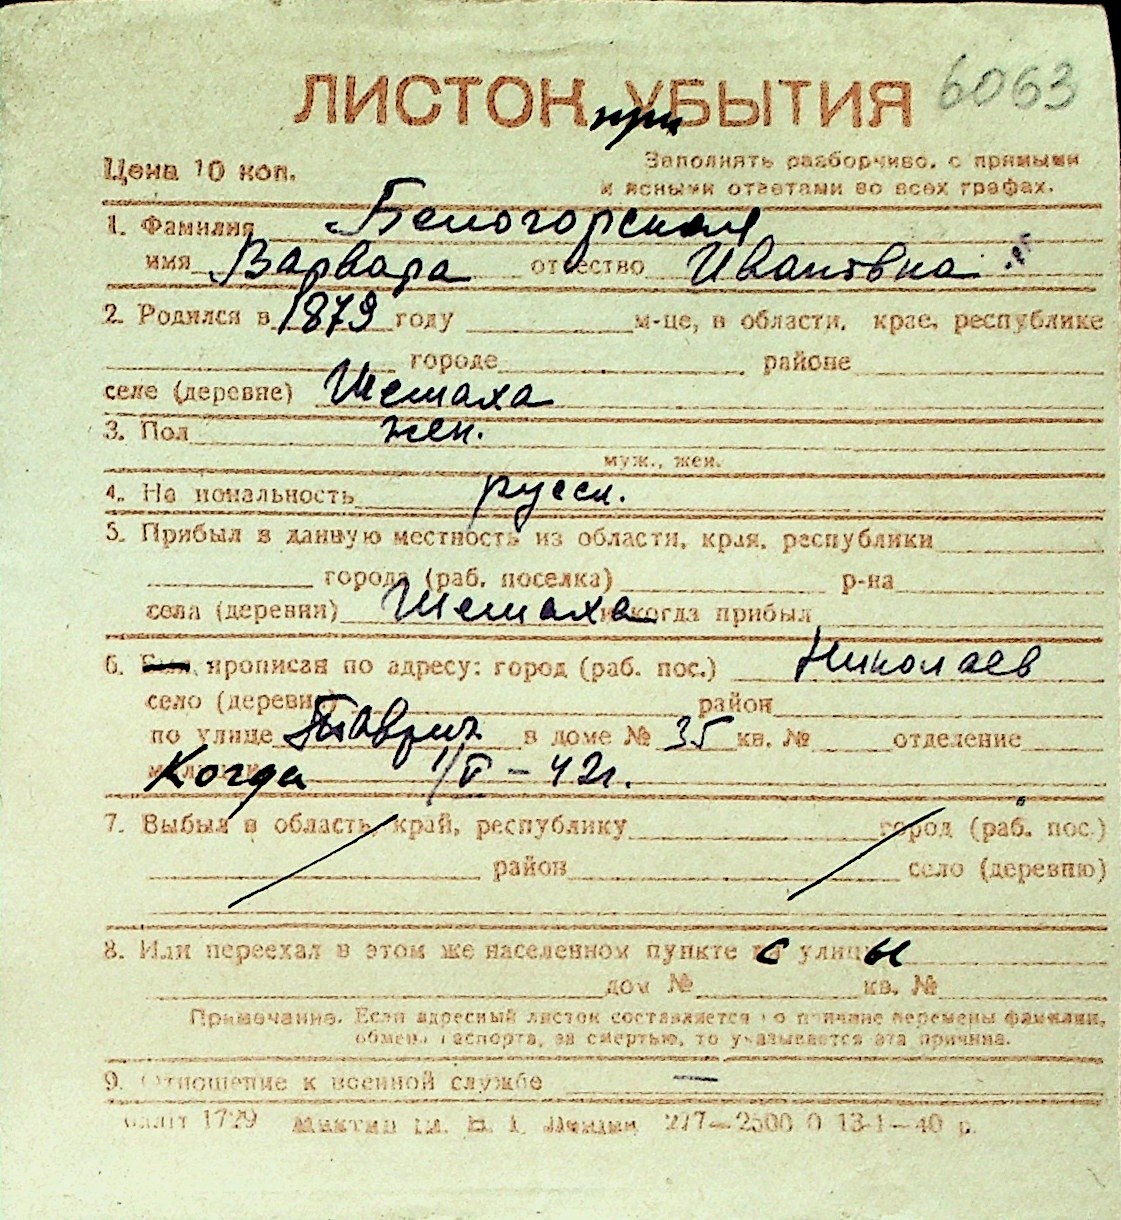 ЛИСТОК при УБЫТИЯ 6063
Цена 10 коп.
Заполнять разборчиво, с прямыми
и ясными ответами во всех графах.
1. Фамилия Белогорская
имя Варвара отчество Ивановна
2. Родился в 1879 году м-це, в области, крае, республике
городе районе
селе (деревне) Шемаха
3. Пол жен.
муж., жен.
4. Национальность русск.
5. Прибыл в данную местность из области, края, республики
города (раб. поселка) р-на
села (деревни) Шемаха и когда прибыл
6. Был прописан по адресу: город (раб. пос.) Николаев
село (деревня) район
по улице Таврич в доме № 35 кв. № отделение
Когда 1/V – 42г.
7. Выбыл в область, край, республику город (раб. пос.)
район село (деревню)
8. Или переехал в этом же населенном пункте с улицы
дом № кв. №
Примечание. Если адресный листок составляется по причине перемены фамилии,
обмена паспорта, за смертью, то указывается эта причина.
9. Отношение к военной службе —
1729 277—2500 0 13-1—40 р.